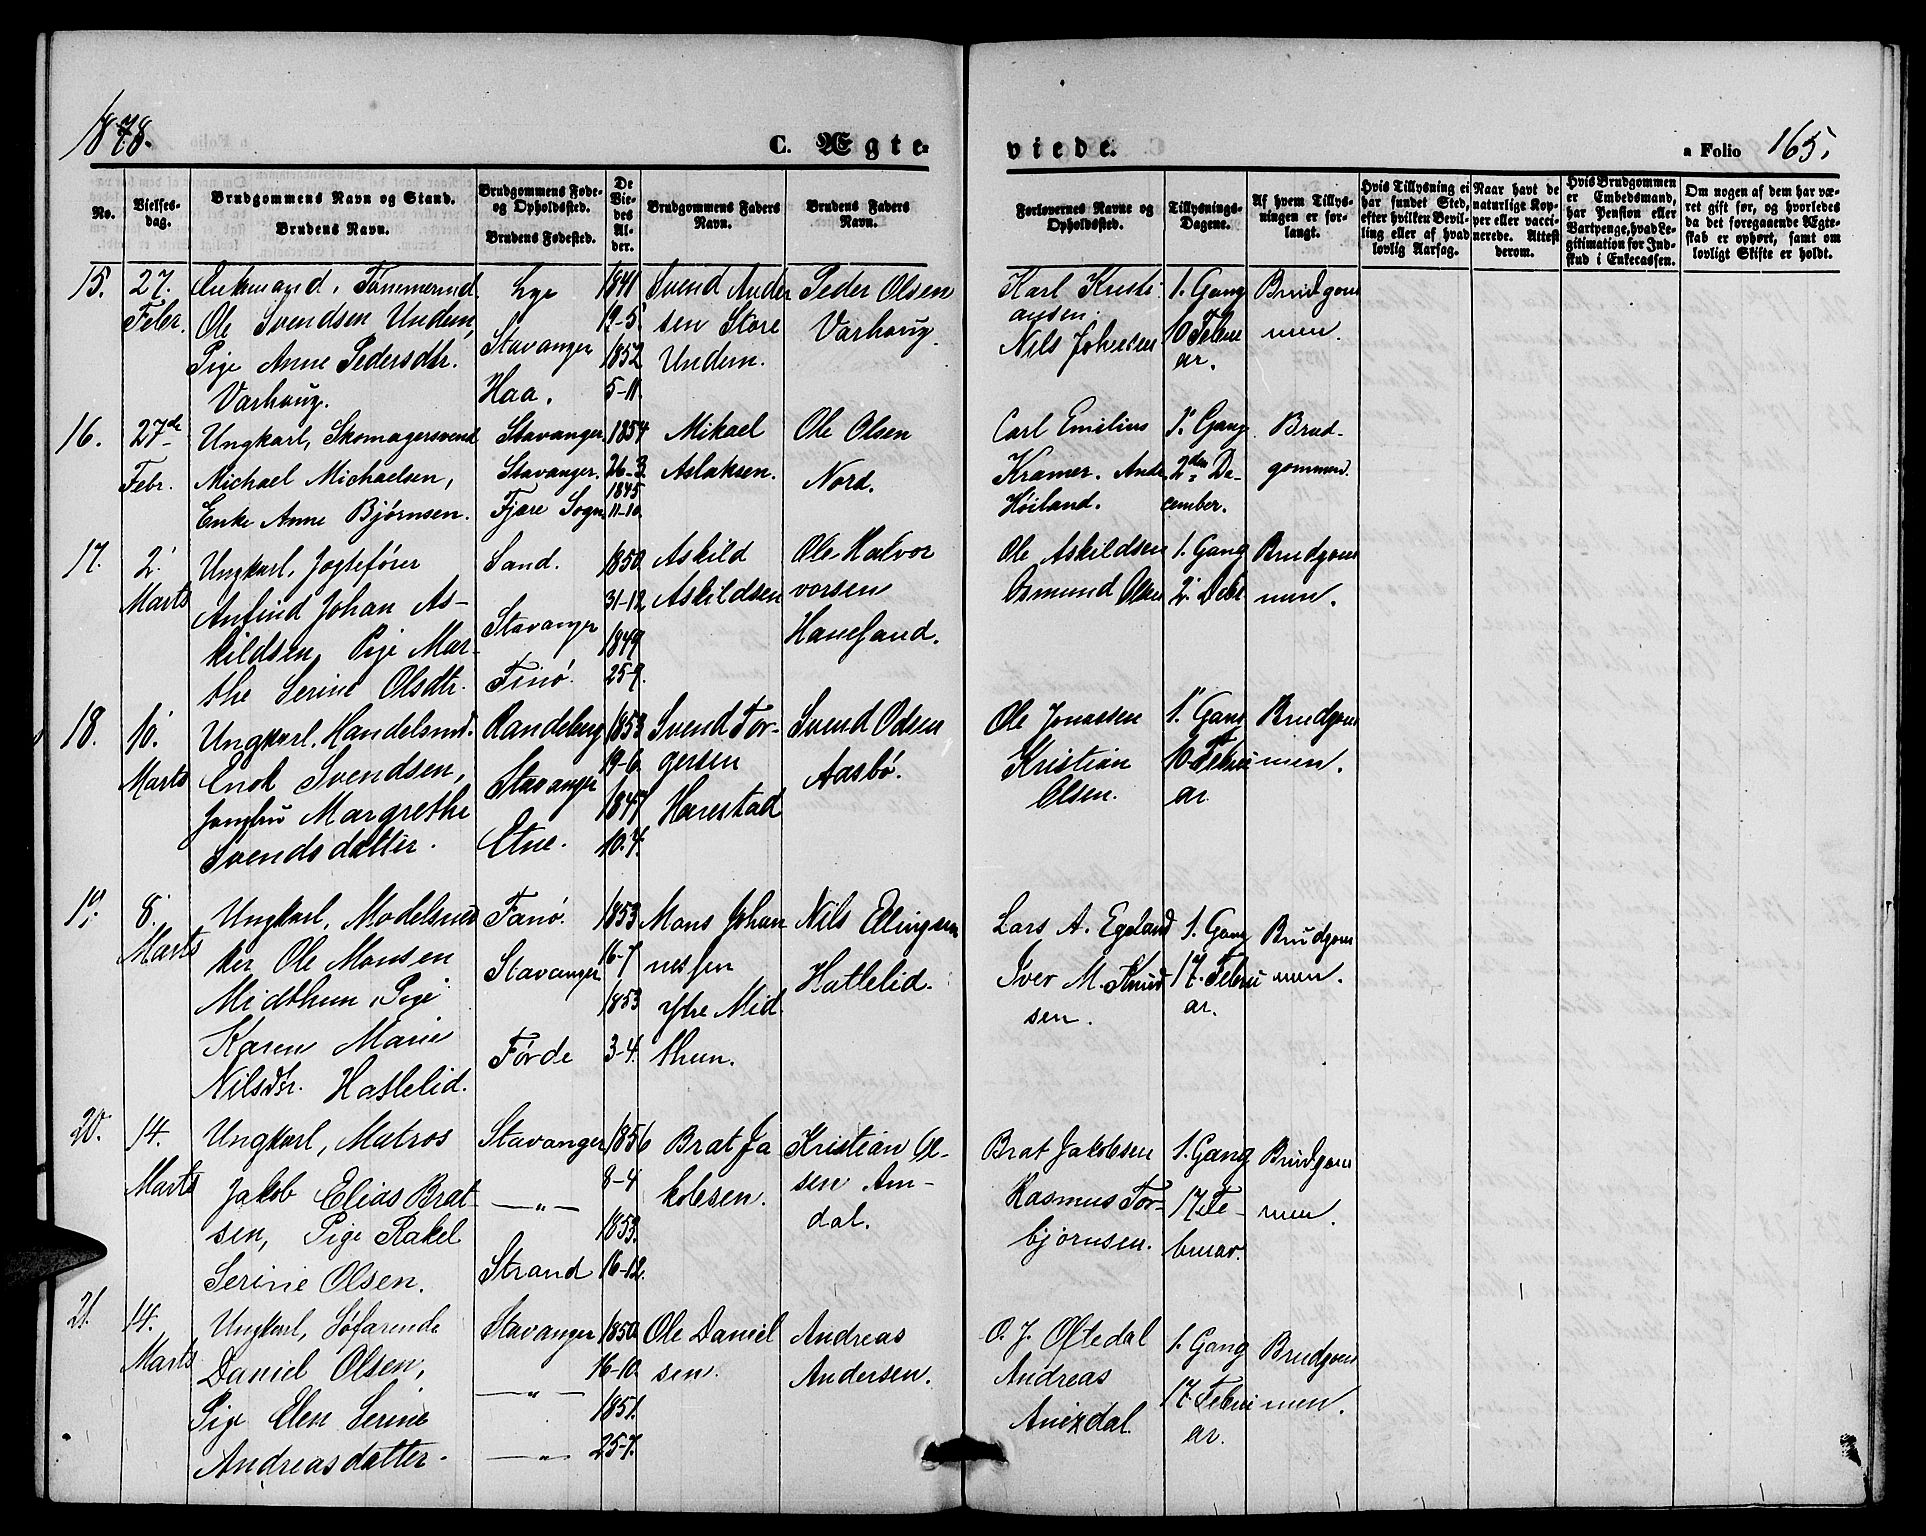 1878.
C. Ægte-
viede.
a Folio 165.
No.
Vielses-
dag.
Brudgommens Navn og Stand.
Brudens Navn.
Brudgommens Føde-
og Opholdsted.
Brudens Fødested.
De
Vie-
des
Al-
der.
Brudgommens Faders
Navn.
Brudens Faders
Navn.
Forlovernes Navne og
Opholdssted.
Tillysnings-
Dagene.
Af hvem Tillys-
ningen er for-
langt.
Hvis Tillysning ei
har fundet Sted,
efter hvilken Bevil-
ling eller af hvad
lovlig Aarsag.
Naar havt de
naturlige Kop-
per eller vacci-
nerede. Attest
derom.
Hvis Brudgommen
er Embedsmand,
har Pension eller
Vartpenge, hvad Le-
gitimation for Ind-
skud i Enkecassen.
Om nogen af dem har væ-
ret gift før, og hvorledes
da det foregaaende Ægte-
skab er ophørt, samt om
lovligt Skifte er holdt.
15.
27.
Febr.
Enkemand, Tømmermd.
Ole Svendsen Undem,
Pige Anne Pedersdtr.
Varhoug.
Lye
Stavanger
Haa.
1841
19-5.
1852
5-11.
Svend Ander
sen Store
Undem.
Peder Olsen
Varhoug.
Karl Kristi
ansen.
Nils Johnsen
1. Gang
10 Febru
ar.
Brudgom
men.
16.
27de
Febr.
Ungkarl, Skomagersvend
Michael Michaelsen,
Enke Anne Bjørnsen.
Stavanger
Stavanger.
Fjære Sogn
1854
26-3.
1845
11-10.
Mikael
Aslaksen.
Ole Olsen
Nord.
Carl Emilius
Kramer. Andr.
Høiland.
1. Gang
2den De-
cember.
Brud-
gommen.
17.
2.
Marts
Ungkarl, Jagtefører
Anfind Johan As-
kildsen, Pige Mar-
the Serine Olsdtr.
Sand.
Stavanger
Finø.
1850
31-12
1849
25-7.
Askild
Askildsen
Ole Halvor
vorsen
Hanesand.
Ole Askildsen
Osmund Olsen
1. Gang
2. Debr
Brudgom
men.
18.
10.
Marts
Ungkarl, Handelsmd.
Enok Svendsen,
Jomfru Margrethe
Svendsdatter.
Randeberg
Stavanger
Etne.
1853
19-6.
1847
10.4.
Svend Tor-
gersen
Harestad
Svend Odsen
Aasbø.
Ole Jonassen
Kristian
Olsen.
1. Gang
10 Febru
ar.
Brudgom
men.
19.
8.
Marts
Ungkarl, Modelsned
ker Ole Monsen
Midthun, Pige
Karen Marie
Nilsdtr. Hatlelid.
Fanø.
Stavanger
Førde
1853
16-7
1853
3-4.
Mons Johan
nessen
Ytre Mid
thun.
Nils Ellingsen
Hatlelid.
Lars A. Egeland
Iver M. Knud
sen.
1. Gang
17. Febru
ar.
Brudgom
men.
20.
14.
Marts
Ungkarl, Matros
Jakob Elias Brat-
sen, Pige Rakel
Serine Olsen.
Stavanger
—"—
Strand
1856
8-4
1853.
16-12.
Brat Ja
kobsen.
Kristian Ol-
sen Am-
dal.
Brat Jakobsen
Rasmus Tor-
bjørnsen.
1. Gang
17. Fe-
bruar.
Brudgom
men.
21.
14.
Marts
Ungkarl, Søfarende
Daniel Olsen,
Pige Elen Serine
Andreasdatter.
Stavanger
—"—
—"—
1850.
16-10.
1851.
25-7.
Ole Daniel
sen.
Andreas
Andersen.
O. J. Oftedal
Andreas
1. Gang
17. Febru
ar.
Brudgom
men.